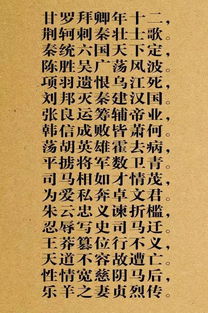 甘罗拜卿年十二，
荆轲刺秦壮士歌。
秦统六国天下定，
陈胜吴广荡风波。
项羽遗恨乌江死，
刘邦灭秦建汉国。
张良运筹辅帝业，
韩信成败皆萧何。
荡胡英雄霍去病，
平掳将军数卫青。
司马相如才情茂，
为爱私奔卓文君。
朱云忠义谏折槛，
忍辱写史司马迁。
王莽篡位行不义，
天道不容故遭亡。
性情宽慈阴马后，
乐羊之妻贞烈传。